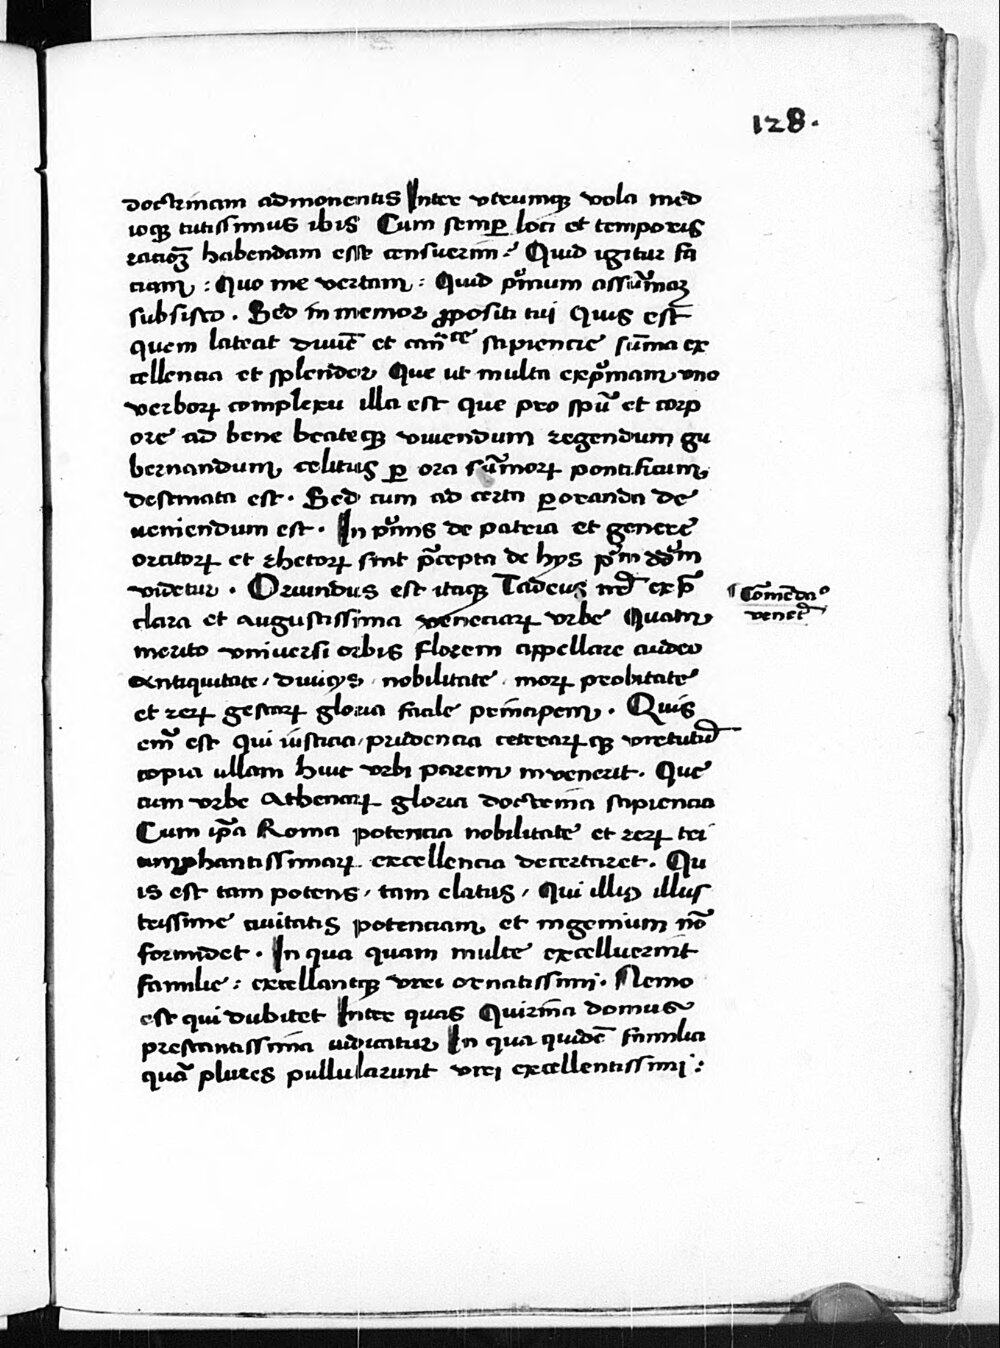 128.
doctrinam admonentis Inter vtrumqꝫ vola med
ioqꝫ tutissimus ibis Cum semꝑ loci et temporis
racioꝫ habendam esse censuerim ? Quid igitur fa
ciam : Quo me vertam : Quid pͥmum assu̅maꝫ
subsisto . Sed in memor ꝓpositi tui Quis est
quem lateat diui̅e et can̅ce sapiencie su̅ma ex
cellencia et splendor Que ut multa expͥmam vno
verboꝝ complexu illa est que pro spu̅ et corp
ore ad bene beateqꝫ viuendum regendum gu
bernandum celitus ꝑ ora su̅moꝝ pontificum
destinata est . Sed cum ad certa ꝑoranda de
ueniendum est . In pͥmis de patria et genere
oratoꝝ et rhetoꝝ sint p̅cepta de hys
videtur . Oriundus est itaqꝫ Tadeus ex p̅
clara et augustissima veneciaꝝ vrbe Quam
Co̅menda
venet
merito vniuersi orbis florem appellare audeo
Antiquitate , diuicys , nobilitate , moꝝ probitate
et reꝝ gestaꝝ gloria facile principem . Quis
em̅ est qui iusticia , prudencia ceteraꝝqꝫ virtutu̅
copia ullam huic vrbi parem inuenerit . Que
cum vrbe Athenaꝝ gloria doctrina sapiencia
Cum ip̅a Roma potencia nobilitate et reꝝ tri
umphantissimaꝝ excellencia decertaret . Qu
is est tam potens , tam elatus , Qui illiꝰ illus
trissime ciuitatis potenciam et ingenium no̅
formidet . In qua quam multe excelluerint
familie : excellantqꝫ viri ornatissimi . Nemo
est qui dubitet Inter quas Quirina domus
prestantissima iudicatur In qua quide̅ familia
qua̅ plures pullularunt viri excellentissimi :